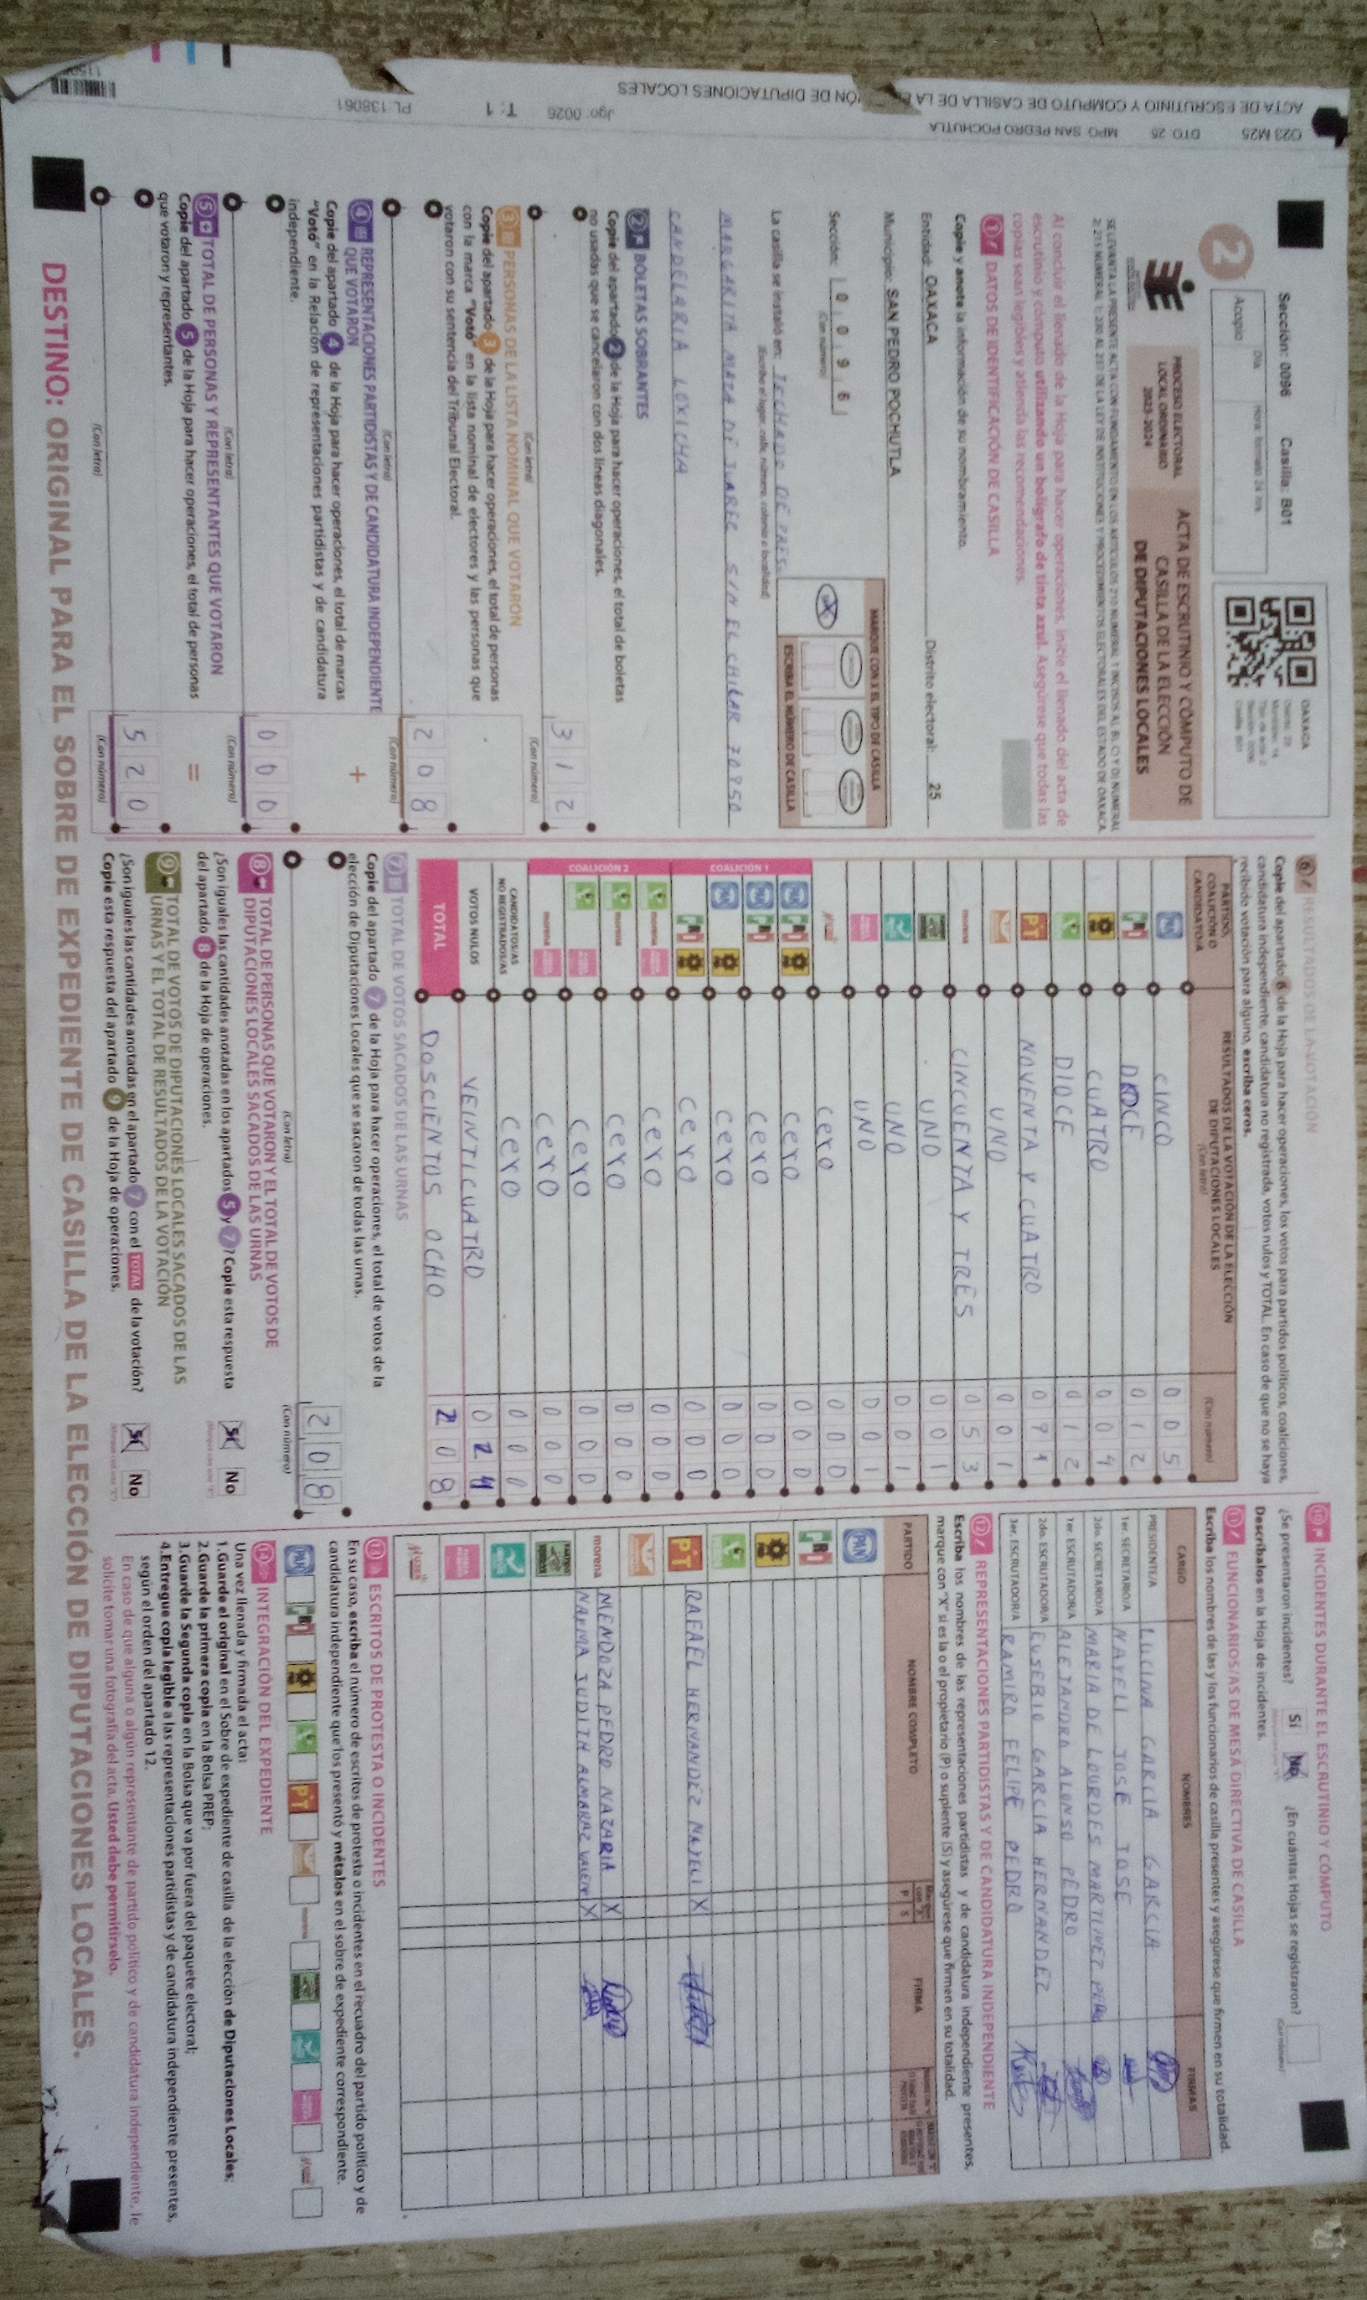 Sección: 0096 Casilla: B01
OAXACA
2
Acopio
Día
Hora: formato 24 hrs.
PROCESO ELECTORAL
LOCAL ORDINARIO
2023-2024
ACTA DE ESCRUTINIO Y CÓMPUTO DE
CASILLA DE LA ELECCIÓN
DE DIPUTACIONES LOCALES
Al concluir el llenado de la Hoja para hacer operaciones, inicie el llenado del acta de
escrutinio y cómputo utilizando un bolígrafo de tinta azul. Asegúrese que todas las
copias sean legibles y atienda las recomendaciones.
1 DATOS DE IDENTIFICACIÓN DE CASILLA
Copie y anote la información de su nombramiento.
Entidad: OAXACA Distrito electoral: 25
Municipio: SAN PEDRO POCHUTLA
Sección: 0 0 9 6
(Con número)
MARQUE CON X EL TIPO DE CASILLA
ESCRIBA EL NÚMERO DE CASILLA
La casilla se instaló en: TECHADO DE
(Escriba el lugar, calle, número, colonia o localidad)
MARGARITA MAZA DE JUAREZ S/N EL CHILAR 70950
CANDELARIA LOXICHA
2 BOLETAS SOBRANTES
Copie del apartado 2 de la Hoja para hacer operaciones, el total de boletas
no usadas que se cancelaron con dos líneas diagonales.
312
(Con letra) (Con número)
3 PERSONAS DE LA LISTA NOMINAL QUE VOTARON
Copie del apartado 3 de la Hoja para hacer operaciones, el total de personas
con la marca "Votó" en la lista nominal de electores y las personas que
votaron con su sentencia del Tribunal Electoral.
208
(Con letra) (Con número)
4 REPRESENTACIONES PARTIDISTAS Y DE CANDIDATURA INDEPENDIENTE
QUE VOTARON
Copie del apartado 4 de la Hoja para hacer operaciones, el total de marcas
"Votó" en la Relación de representaciones partidistas y de candidatura
independiente.
+
000
(Con letra) (Con número)
5 TOTAL DE PERSONAS Y REPRESENTANTES QUE VOTARON
Copie del apartado 5 de la Hoja para hacer operaciones, el total de personas
que votaron y representantes.
=
520
(Con letra) (Con número)
6 RESULTADOS DE LA VOTACIÓN
Copie del apartado 6 de la Hoja para hacer operaciones, los votos para partidos políticos, coaliciones,
candidatura independiente, candidatura no registrada, votos nulos y TOTAL. En caso de que no se haya
recibido votación para alguno, escriba ceros.
PARTIDO, COALICIÓN O CANDIDATO/A
RESULTADOS DE LA VOTACIÓN DE LA ELECCIÓN
DE DIPUTACIONES LOCALES
(Con letra) (Con número)
CINCO 005
DOCE 012
CUATRO 004
DIOCE 012
PT NOVENTA Y CUATRO 094
UNO 001
morena CINCUENTA Y TRES 053
UNO 001
UNO 001
UNO 001
cero 000
COALICIÓN 1
cero 000
cero 000
cero 000
cero 000
COALICIÓN 2
morena cero 000
morena cero 000
cero 000
morena cero 000
CANDIDATOS/AS
NO REGISTRADOS/AS cero 000
VOTOS NULOS VEINTICUATRO 024
TOTAL DOSCIENTOS OCHO 208
7 TOTAL DE VOTOS SACADOS DE LAS URNAS
Copie del apartado 7 de la Hoja para hacer operaciones, el total de votos de la
elección de Diputaciones Locales que se sacaron de todas las urnas.
208
(Con letra) (Con número)
8 TOTAL DE PERSONAS QUE VOTARON Y EL TOTAL DE VOTOS DE
DIPUTACIONES LOCALES SACADOS DE LAS URNAS
¿Son iguales las cantidades anotadas en los apartados 5 y 7? Copie esta respuesta
del apartado 8 de la Hoja de operaciones.
Sí No
9 TOTAL DE VOTOS DE DIPUTACIONES LOCALES SACADOS DE LAS
URNAS Y EL TOTAL DE RESULTADOS DE LA VOTACIÓN
¿Son iguales las cantidades anotadas en el apartado 7 con el TOTAL de la votación?
Copie esta respuesta del apartado 9 de la Hoja de operaciones.
Sí No
10 INCIDENTES DURANTE EL ESCRUTINIO Y CÓMPUTO
¿Se presentaron incidentes? Sí No ¿En cuántas Hojas se registraron?
Descríbalos en la Hoja de incidentes.
11 FUNCIONARIOS/AS DE MESA DIRECTIVA DE CASILLA
Escriba los nombres de las y los funcionarios de casilla presentes y asegúrese que firmen en su totalidad.
CARGO NOMBRES FIRMAS
PRESIDENTE/A LUCINA GARCIA GARCIA
1er. SECRETARIO/A NAYELI JOSE JOSE
2do. SECRETARIO/A MARIA DE LOURDES MARTINEZ
1er. ESCRUTADOR/A ALEJANDRO ALONSO PEDRO
2do. ESCRUTADOR/A EUSEBIO GARCIA HERNANDEZ
3er. ESCRUTADOR/A RAMIRO FELIPE PEDRO
12 REPRESENTACIONES PARTIDISTAS Y DE CANDIDATURA INDEPENDIENTE
Escriba los nombres de las representaciones partidistas y de candidatura independiente presentes,
marque con "X" si es la o el propietario (P) o suplente (S) y asegúrese que firmen en su totalidad.
PARTIDO NOMBRE COMPLETO P S FIRMA
PAN
PRI
PT RAFAEL HERNANDEZ NAYELI X
morena MENDOZA PEDRO NAZARIA X
NAHMA JUDITH ALMARAZ X
13 ESCRITOS DE PROTESTA O INCIDENTES
En su caso, escriba el número de escritos de protesta o incidentes en el recuadro del partido político y de
candidatura independiente que los presentó y métalos en el sobre de expediente correspondiente.
PAN PRI PT morena
14 INTEGRACIÓN DEL EXPEDIENTE
Una vez llenada y firmada el acta:
1. Guarde el original en el Sobre de expediente de casilla de la elección de Diputaciones Locales;
2. Guarde la primera copia en la Bolsa PREP;
3. Guarde la Segunda copia en la Bolsa que va por fuera del paquete electoral;
4. Entregue copia legible a las representaciones partidistas y de candidatura independiente presentes,
según el orden del apartado 12.
En caso de que alguna o algún representante de partido político y de candidatura independiente, le
solicite tomar una fotografía del acta. Usted debe permitírselo.
DESTINO: ORIGINAL PARA EL SOBRE DE EXPEDIENTE DE CASILLA DE LA ELECCIÓN DE DIPUTACIONES LOCALES.
O23 M25 DTO 25 MPO SAN PEDRO POCHUTLA
ACTA DE ESCRUTINIO Y COMPUTO DE CASILLA DE LA DE DIPUTACIONES LOCALES
Jgo: 0026 T: 1 PL 136061